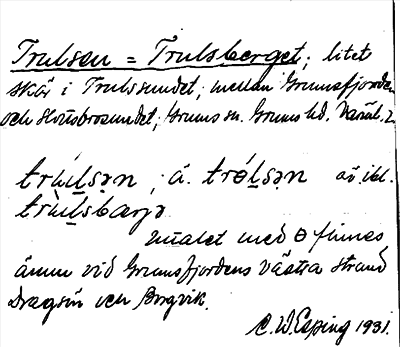 Trulsen = Trulsberget; litet
skär i Trulssundet, mellan Grumsfjorden
och Slottsbrosundet, Grums sn. Grums hd. Värml.
tru̱lsən, ä. trɵ̱lsən
tru̱lsbarjə
målet med ɵ finnes
ännu vid Grumsfjordens västra strand
och Borgvik.
C.W. Esping 1931.